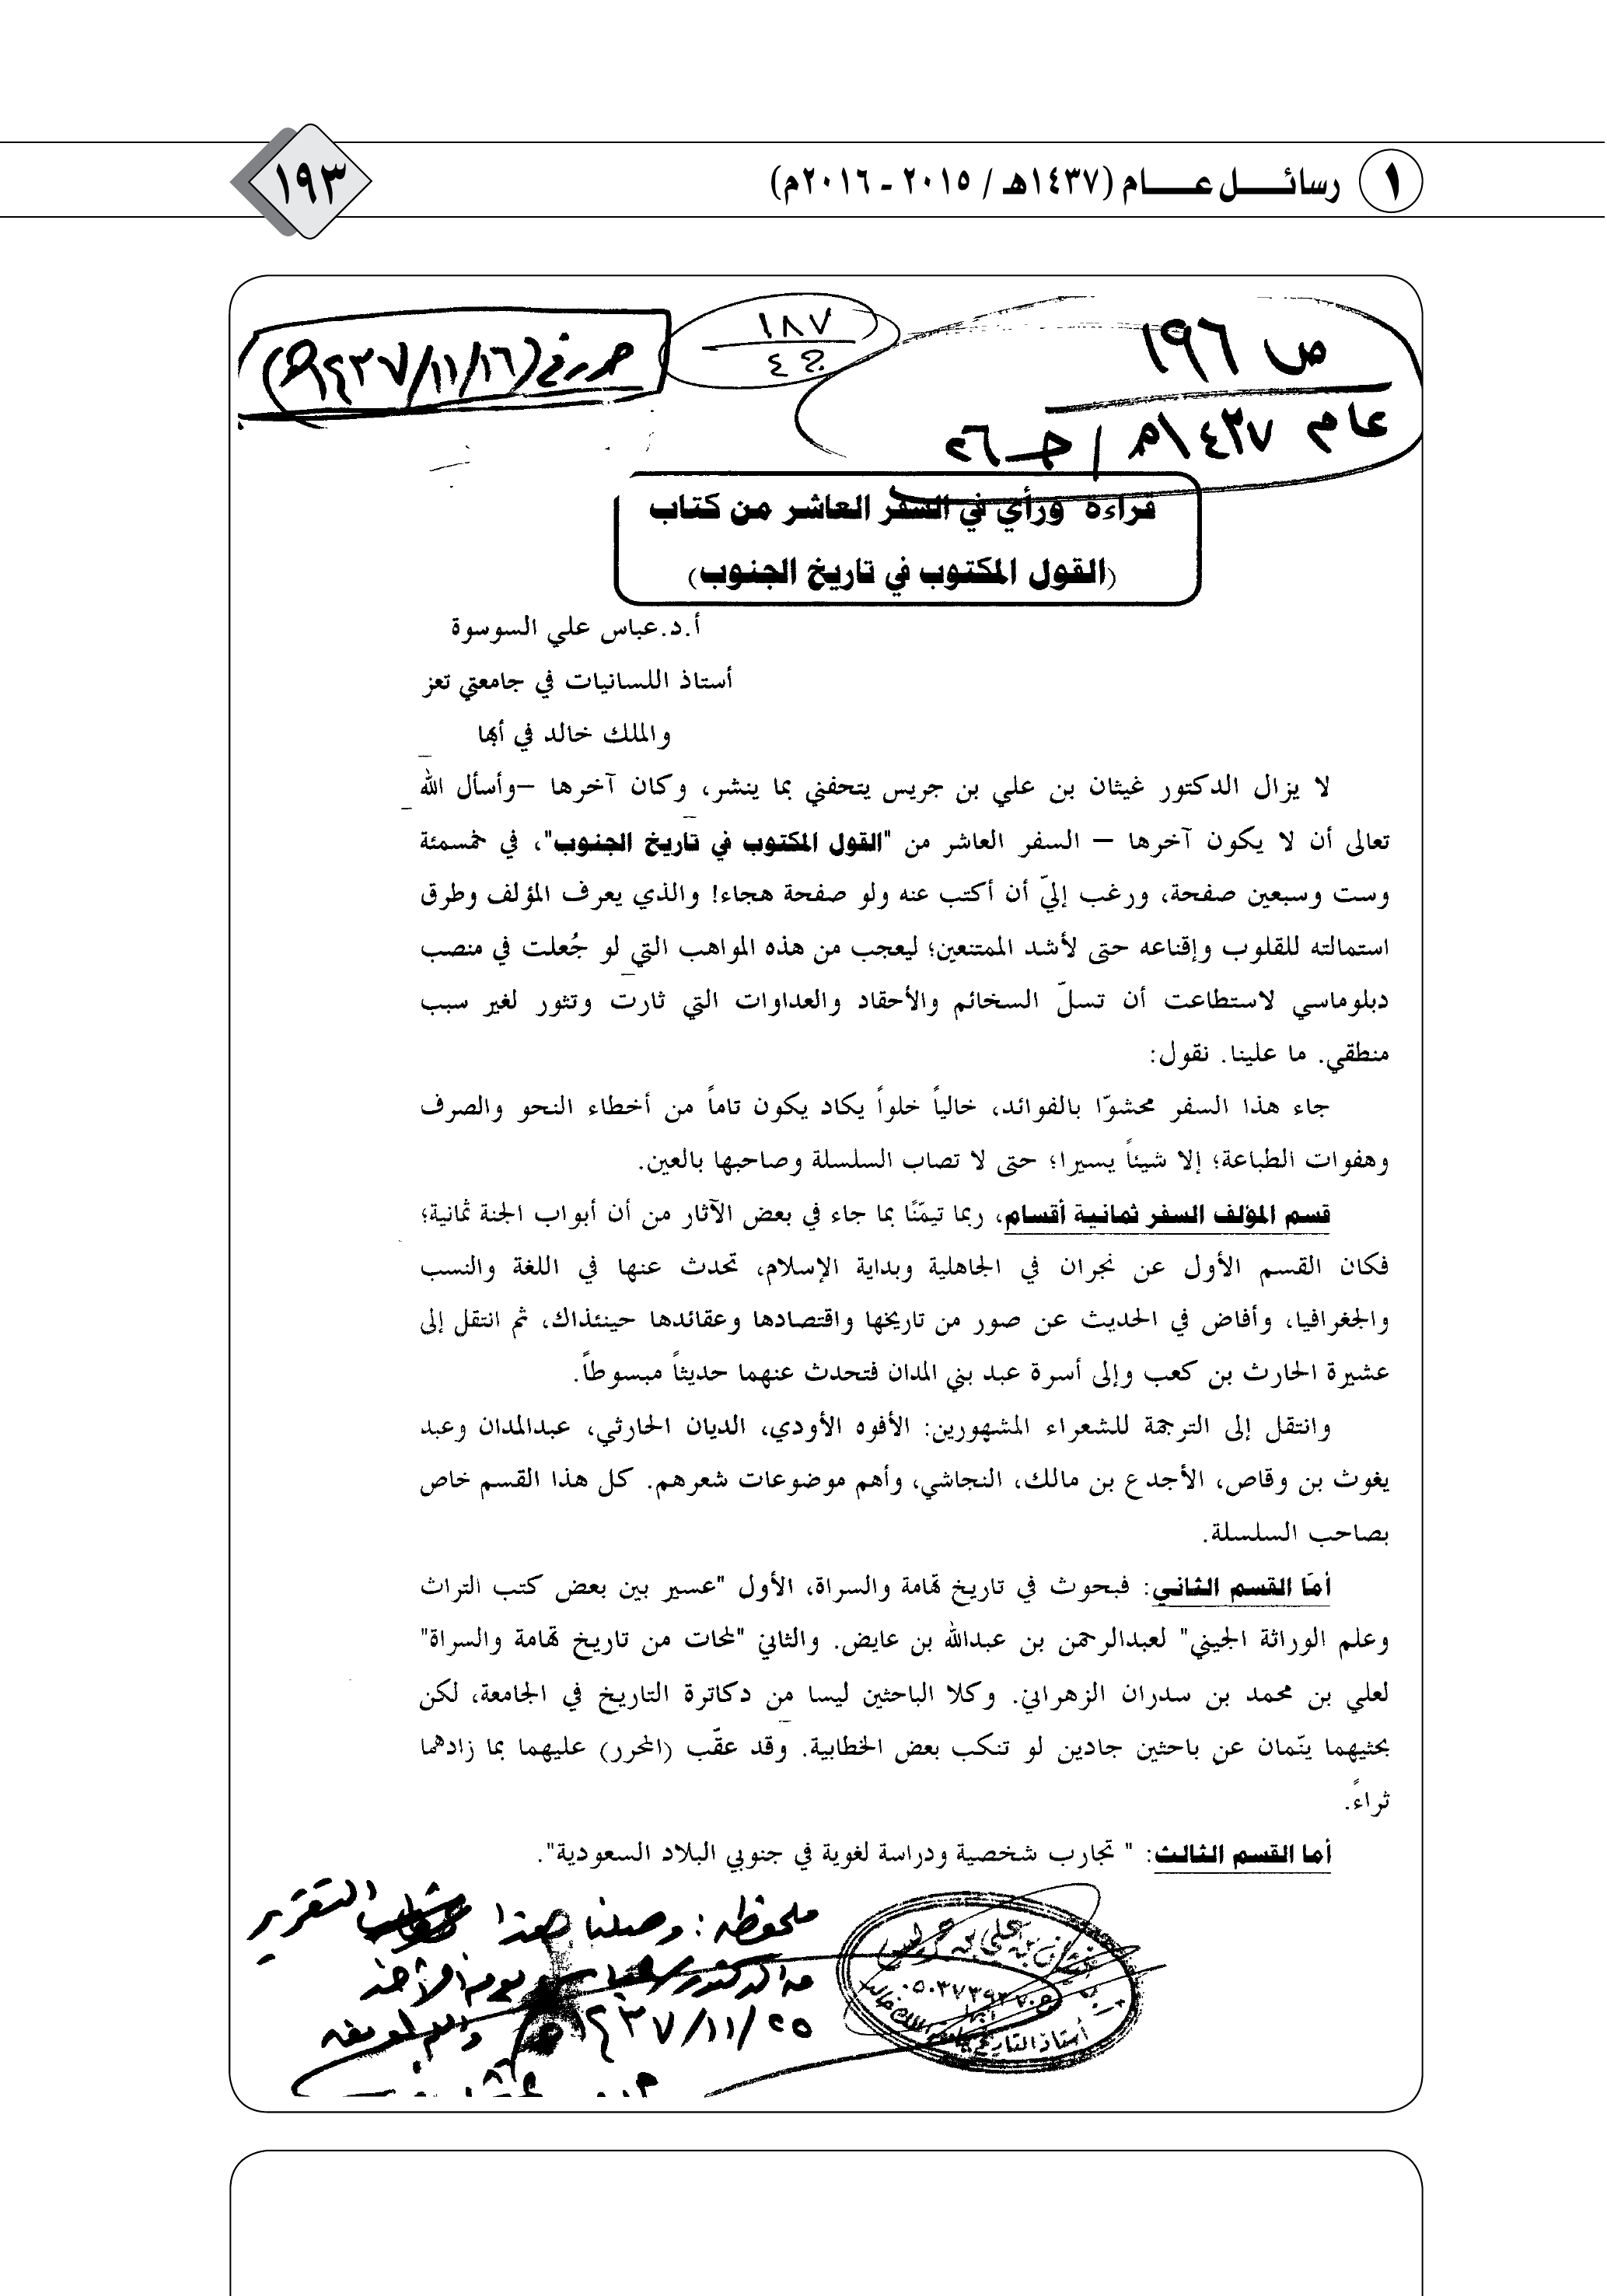 ١ رسائــل عــام (١٤٣٧هـ / ٢٠١٥ ـ ٢٠١٦م)
١٩٣
ص ١٩٦
عام ١٤٣٧هـ / جـ ٢٦
١٨٧
ج ٤
حرر في (١٤٣٧/١١/١٦هـ)
قراءة ورأي في السفر العاشر من كتاب
(القول المكتوب في تاريخ الجنوب)
أ.د.عباس علي السوسوة
أستاذ اللسانيات في جامعتي تعز
والملك خالد في أبها
لا يزال الدكتور غيثان بن علي بن جريس يتحفني بما ينشر، وكان آخرها –وأسأل الله
تعالى أن لا يكون آخرها – السفر العاشر من "القول المكتوب في تاريخ الجنوب"، في خمسمئة
وست وسبعين صفحة، ورغب إليّ أن أكتب عنه ولو صفحة هجاء! والذي يعرف المؤلف وطرق
استمالته للقلوب وإقناعه حتى لأشد الممتنعين؛ ليعجب من هذه المواهب التي لو جُعلت في منصب
دبلوماسي لاستطاعت أن تسلّ السخائم والأحقاد والعداوات التي ثارت وتثور لغير سبب
منطقي. ما علينا. نقول:
جاء هذا السفر محشوّا بالفوائد، خالياً خلواً يكاد يكون تاماً من أخطاء النحو والصرف
وهفوات الطباعة؛ إلا شيئاً يسيرا؛ حتى لا تصاب السلسلة وصاحبها بالعين.
قسم المؤلف السفر ثمانية أقسام، ربما تيمّنًا بما جاء في بعض الآثار من أن أبواب الجنة ثمانية؛
فكان القسم الأول عن نجران في الجاهلية وبداية الإسلام، تحدث عنها في اللغة والنسب
والجغرافيا، وأفاض في الحديث عن صور من تاريخها واقتصادها وعقائدها حينئذاك، ثم انتقل إلى
عشيرة الحارث بن كعب وإلى أسرة عبد بني المدان فتحدث عنهما حديثاً مبسوطاً.
وانتقل إلى الترجمة للشعراء المشهورين: الأفوه الأودي، الديان الحارثي، عبدالمدان وعبد
يغوث بن وقاص، الأجدع بن مالك، النجاشي، وأهم موضوعات شعرهم. كل هذا القسم خاص
بصاحب السلسلة.
أمّا القسم الثاني: فبحوث في تاريخ تهامة والسراة، الأول "عسير بين بعض كتب التراث
وعلم الوراثة الجيني" لعبدالرحمن بن عبدالله بن عايض. والثاني "لمحات من تاريخ تهامة والسراة"
لعلي بن محمد بن سدران الزهراني. وكلا الباحثين ليسا من دكاترة التاريخ في الجامعة، لكن
بحثيهما ينّمان عن باحثين جادين لو تنكب بعض الخطابية. وقد عقّب (المحرر) عليهما بما زادهما
ثراءً.
أما القسم الثالث: " تجارب شخصية ودراسة لغوية في جنوبي البلاد السعودية".
ملحوظة: وصلنا هذا التقرير
من الدكتور عباس يوم الأحد
١٤٣٧/١١/٢٥هـ والله الموفق
غيثان بن علي بن جريس
أستاذ التاريخ بجامعة الملك خالد